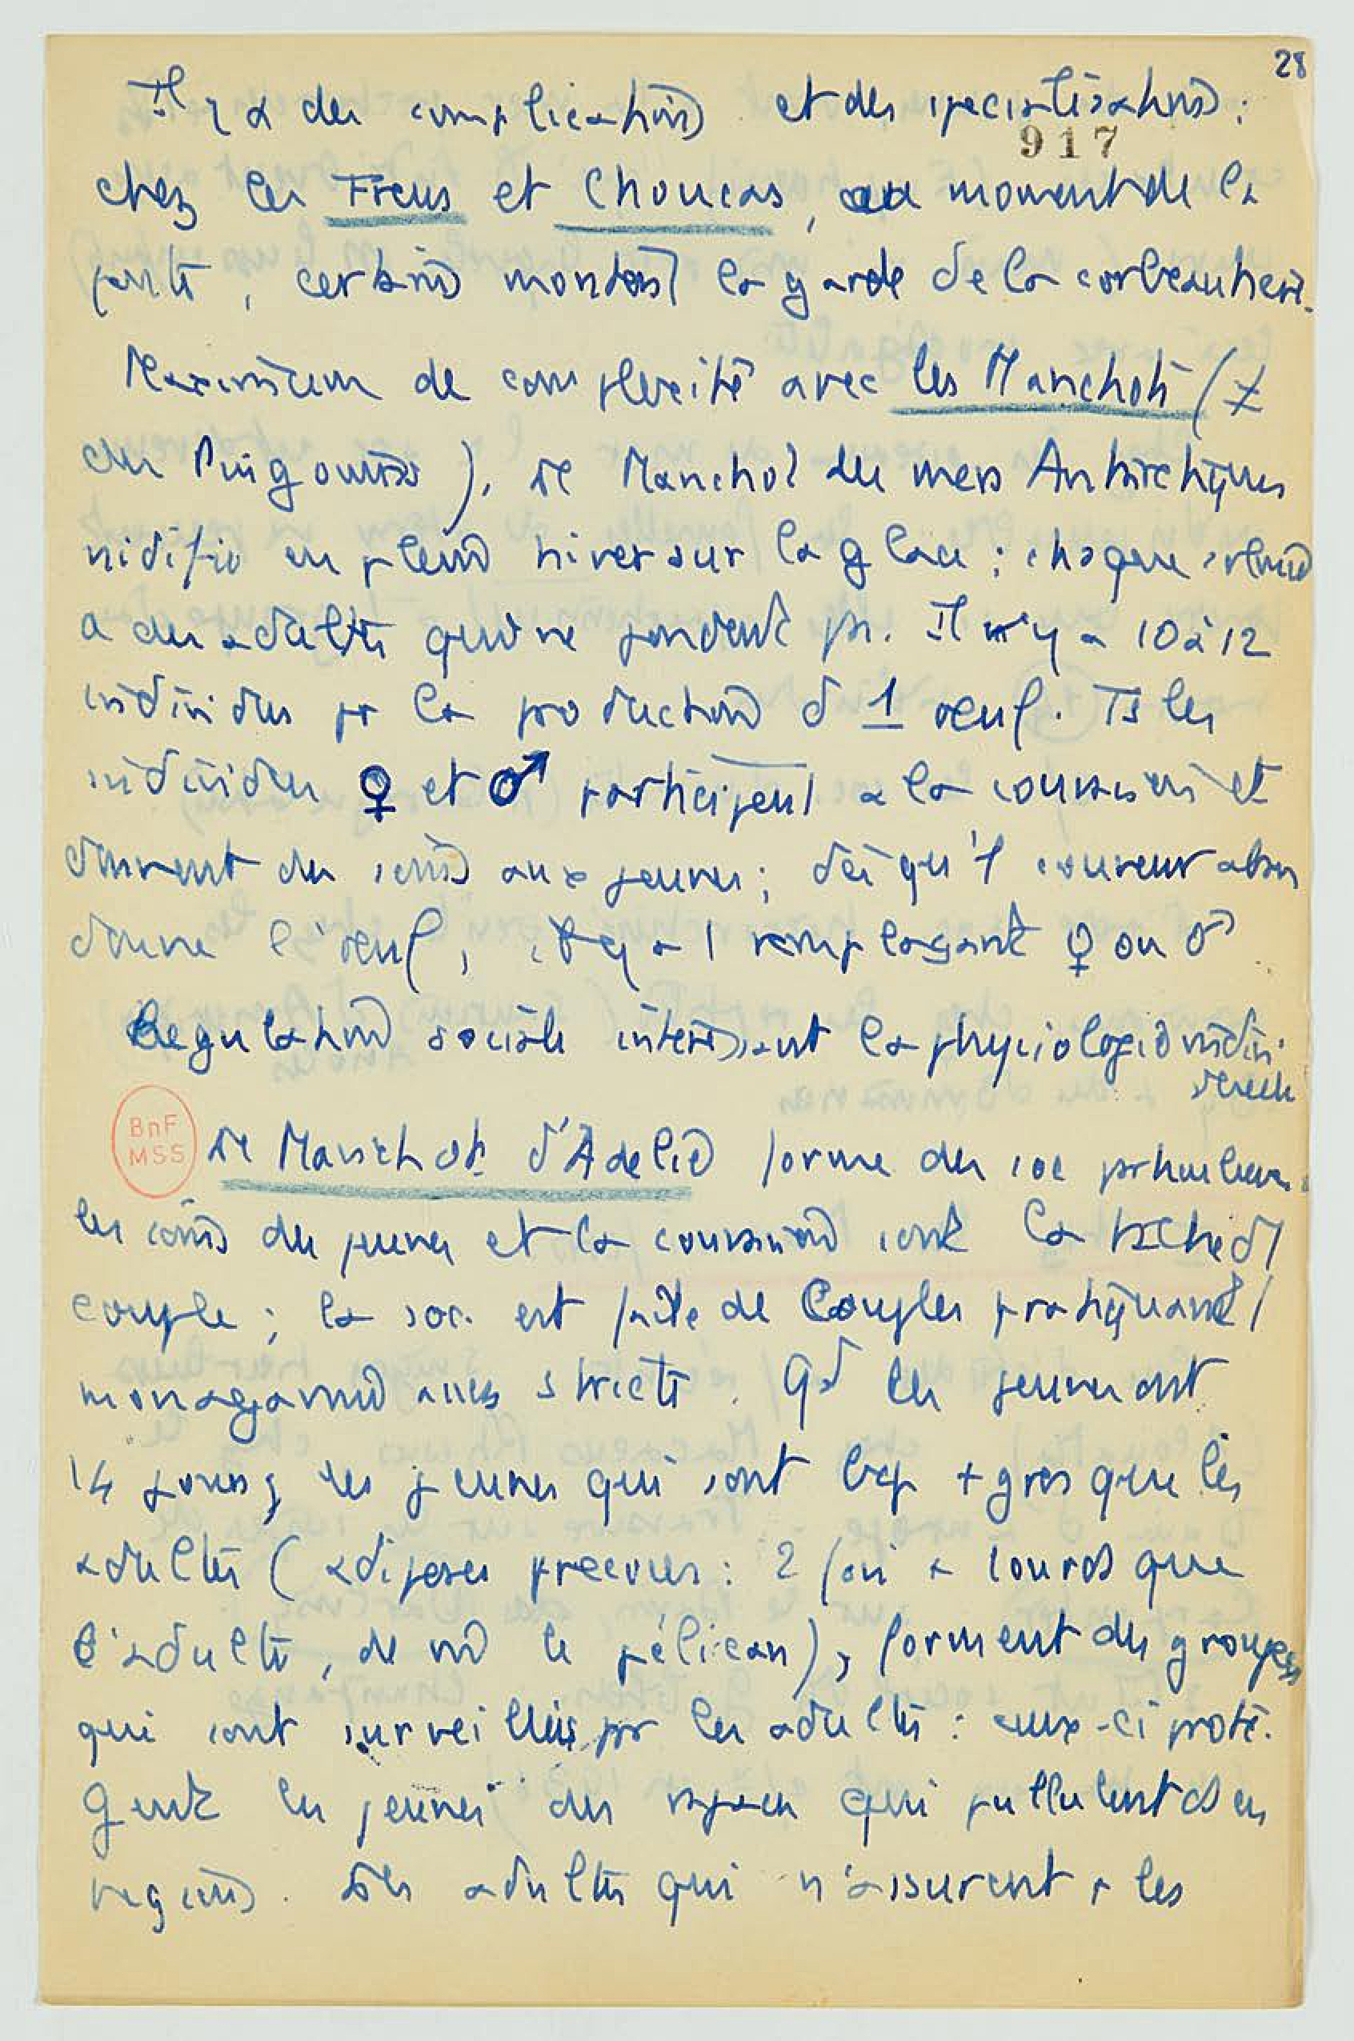 28
Il y a des complications et des specialisations :
917
chez les Freus et Choucas, au moment de la
ponte, certains montent la garde de la corbeautière.
Maximum de complexité avec les Manchots (≠
des Pingouins). Le Manchot des mers Antarctiques
nidifie en plein hiver sur la glace ; chaque colonie
a des adultes qui ne pondent ps. Il y a 10 à 12
individus pr la production d 1 oeuf. Ts les
individus ♀ et ♂ participent a la couvaison et
donnent des soins aux jeunes ; dès qu'1 couveur aban
donne l'oeuf, il y a 1 remplaçant ♀ ou ♂
Regulation sociale intéressant la physiologie indivi-
duelle
BnF
MSS
Le Manchot d'Adelie forme des soc particulieres
les soins des jeunes et la couvaison sont la tache d1
couple ; la soc. est faite de Couples pratiquant 1
monogamie assez stricte. Qd les jeunes ont
14 jours, les jeunes qui sont bcp + gros que les
adultes (adiposes precoces : 2 fois + lourds que
l'adulte, de m̂ le pélican), forment des groupes
qui sont surveillés pr les adultes : ceux-ci protè-
gent les jeunes des rapaces qui pullulent ds ces
regions. Les adultes qui n'assurent p les